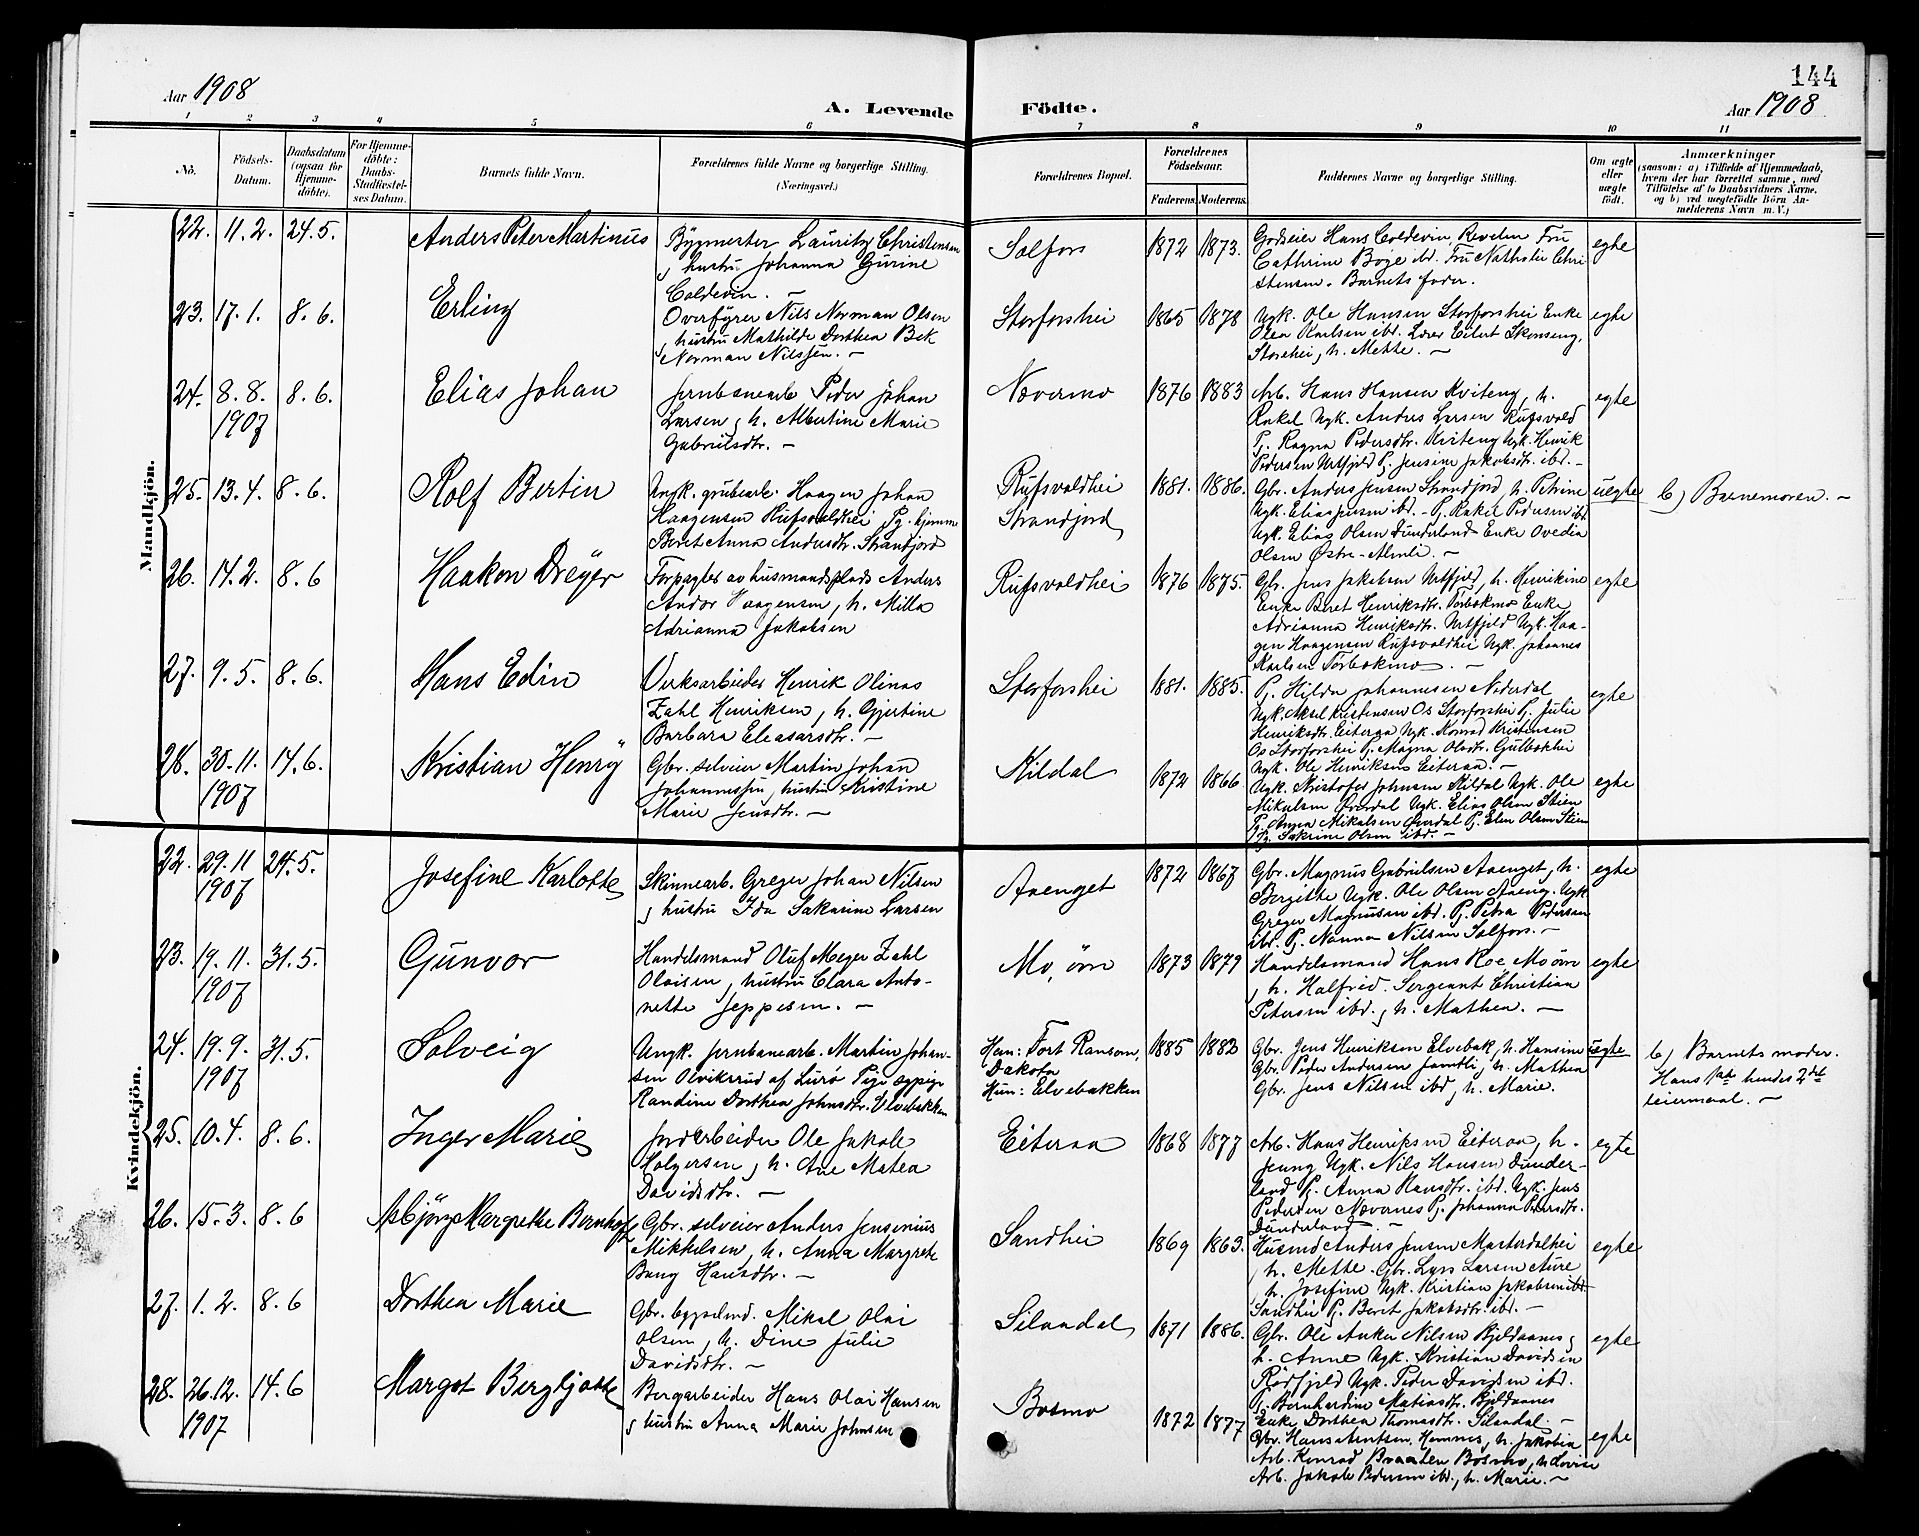 144
Aar 1908
A. Levende Födte.
Aar 1908
1 2 3 4 5 6 7 8 9 10 11
No.
Födsels-Datum.
Daabsdatum (ogsaa for Hjemmedöbte).
For Hjemmedöbte: Daabs-Stadfæstelses Datum.
Barnets fulde Navn.
Forældrenes fulde Navne og borgerlige Stilling.
(Næringsvei.)
Forældrenes Bopæl.
Forældrenes Födselsaar.
Faderens. Moderens.
Faddernes Navne og borgerlige Stilling.
Om ægte eller uægte födt.
Anmærkninger
(saasom: a) i Tilfælde af Hjemmedaab, hvem der har forrettet samme, med Tilföielse af to Daabsvidners Navne, og b) ved uægtefödte Börn Anmelderens Navn m. V.)
Mandkjön.
22. 11.2. 24.5. Anders Peter Martinus
Bygmester Lauritz Christensen
, hustru Johanna Gurine
Coldevin. —
Solfors 1872 1873.
Godseier Hans Coldevin, Revelen Fru
Cathrine Boge ibd. Fru Nathalie Chri-
stensen. Barnets fader.
egte
23. 17.1. 8.6. Erling
Overfyrer Nils Norman Olsen
, hustru Mathilde Dorthea Bek
Norman Nilssen. —
Storforshei 1865 1878
Ugk. Ole Hansen Storforshei Enke
Olea Karlsen ibd. Lærer Eilert Skonseng,
Storehei, h. Mette. —
egte
24. 8.8. 1907 8.6. Elias Johan
Jernbanearb Peder Johan
Larsen, h. Albertine Marie
Gabrielsdtr. —
Nævermo 1876 1883
Arb. Hans Hansen Kviteng, h.
Rakel Ugk. Anders Larsen Rufsvold
Pj. Ragna Pedersdtr. Kviteng Ugk. Henrik
Pedersen Urtfjeld Pj. Jensine Jakobsdtr. ibd. —
egte
25. 13.4. 8.6. Rolf Bertin
Ungk. grubearb. Haagen Johan
Haagensen Rufsvoldhei Pg. hjemme
Beret Anna Andersdtr. Strandjord
Rufsvoldhei
Strandjord
1881. 1886.
Gbr. Anders Jensen Strandjord, h. Petrine
Ugk. Elias Jensen ibd. — Pj. Rakel Pedersen ibd.
Ugk. Elias Olsen Dunderland Enke Ovedia
Olsen Østre-Almli. —
uegte
b) Barnemoren. —
26. 14.2. 8.6 Haakon Dreyer
Forpagter av husmandsplads Anders
Andor Haagensen, h. Milla
Adrianna Jakobsen
Rufsvoldhei 1876 1875.
Gbr. Jens Jakobsen Urtfjeld, h. Henrikine
Enke Beret Henriksdtr. Torbekmo Enke
Adrianna Henriksdtr. Urtfjeld Ugk. Haa-
gen Haagensen Rufsvoldhei Ugk. Johannes
Karlsen Torbekmo. —
egte
27. 9.5. 8.6. Hans Edin
Verksarbeider Henrik Olinas
Zahl Henriksen, h. Gjertine
Barbara Eleasarsdtr. —
Storforshei 1881. 1885.
Pj. Hilda Johannesen Nederdal
Ugk. Aksel Kristensen Os Storforshei Pj. Julie
Henriksdtr. Eiteraa Ugk. Konrad Kristensen
Os Storforshei Pj. Magna Olsdtr. Gulbekhei
Ugk. Ole Henriksen Eiteraa. —
egte
28. 30.11. 1907 14.6. Kristian Henry
Gbr. selveier Martin Johan
Johannessen, hustru Kristine
Marie Jensdtr. —
Kildal 1872 1866
Ugk. Kristofer Johnsen Kildal Ugk. Ole
Mikalsen Overdal Ugk. Elias Olsen Stien
Pj. Anna Mikalsen Overdal Pj. Elen Olsen Stien
Pj. Sakrine Olsen ibd. —
egte
Kvindekjön.
22. 29.11 1907 24.5. Josefine Karlotte
Skinnearb. Greger Johan Nilsen
, hustru Ida Sakarine Larsen
Avenget 1872 1867
Gbr. Magnus Gabrielsen Avenget, h.
Bergitte Ugk. Ole Olsen Aveng. Ugk
Greger Magnusen ibd. Pj. Petra Pedersen
ibd. Pj. Nanna Nilsen Solfors. —
egte
23. 19.11. 1907 31.5. Gunvor
Handelsmand Oluf Meyer Zahl
Olaisen, hustru Clara Anto-
nette Jeppesen. —
Mo, örn 1873 1879
Handelsmand Hans Roe Mo örn
, h. Halfrid. Sergeant Christian
Petersen ibd., h. Mathea. —
egte
24. 19.9. 1907 31.5. Solveig
Ungk. Jernbanearb. Martin Johan-
sen Olviksrud af Lurö Pige
Randine Dorthea Johnsdtr. Elvebakken
Han: Fort Ransom,
Dakota
Hun: Elvebakken
1885 1882
Gbr. Jens Henriksen Elvebak, h. Hansine
Gbr. Peder Andersen Jamtli, h. Mathea
Gbr. Jens Nilsen ibd, h. Marie.
uegte
b) Barnets moder.
Hans 1ste hendes 2det
leiermaal. —
25. 10.4. 8.6. Inger Marie
Jordarbeider Ole Jakob
Holgersen, h. Ane Matea
Davidsdtr. —
Eiteraa 1868 1877
Arb. Hans Henriksen Eiteraa, h.
Jenny Ugk. Nils Hansen Dunder-
land Pj. Anna Hansdtr. ibd. Ugk. Jens
Pedersen Nævernes Pj. Johanna Pedersdtr.
Dunderland. —
egte
26. 15.3. 8.6 Asbjörg Margrethe Bernhof
Gbr. selveier Anders Jensenius
Mikkelsen, h. Anna Margrete
Bang Hansdtr. —
Sandhei 1869 1863.
Husmd Anders Jensen Masterdalhei
, h. Mette. Gbr. Lars Larsen Aure
h. Josefine Ugk. Kristian Jakobsen ibd.
Sandhei Pj. Berit Jakobsdtr. ibd. —
egte
27. 1.2. 8.6 Dorthea Marie
Gbr. bygselmd. Mikal Olai
Olsen, h. Dine Julie
Davidsdtr. —
Silandal 1871 1886.
Gbr. Ole Anker Nilsen Bjeldaanes,
h. Anne Ugk. Kristian Davidsen
Rödfjeld Ugk. Peder Davidsen ibd.
Pj. Bernhardine Matiasdtr. Bjeldaanes
Enke Dorthea Thomasdtr. Silandal. —
egte
28. 26.12. 1907 14.6 Margot Bergljotte
Bergarbeider Hans Olai Hansen
, hustru Anna Marie Johnsen
Bosmo 1872 1877
Gbr. Hans Arntsen Hemnes, h. Jakobia
Arb. Konrad Braaten Bosmo, h Lovise
Arb. Jakob Pedersen ibd., h. Marie. —
egte